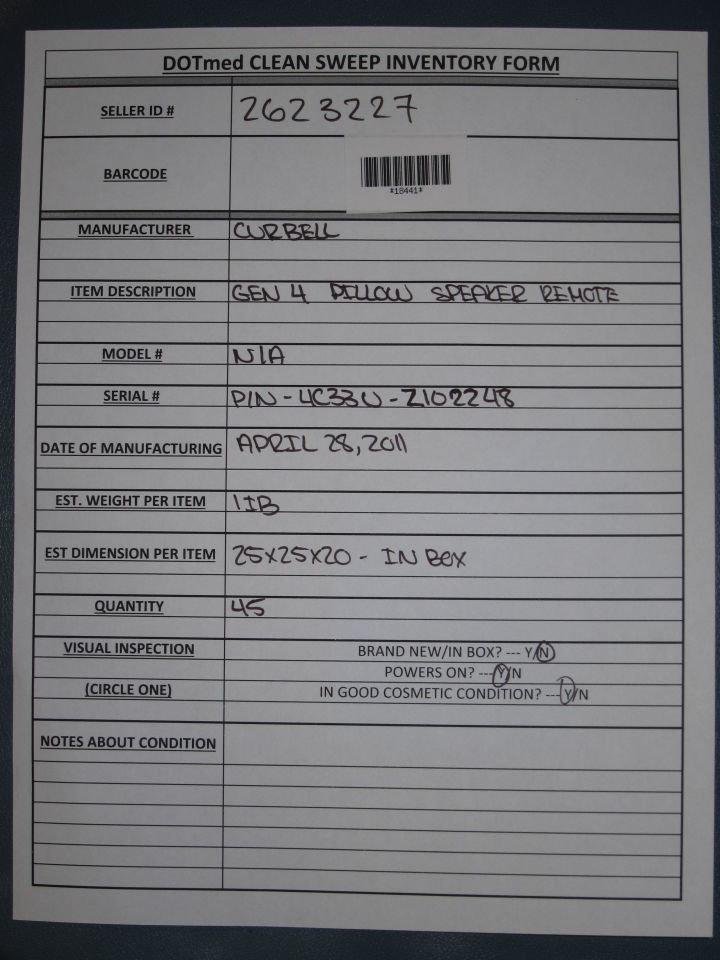 DOTmed CLEAN SWEEP INVENTORY FORM
SELLER ID # 2623227
BARCODE *18441*
MANUFACTURER CURBELL
ITEM DESCRIPTION GEN 4 PILLOW SPEAKER REMOTE
MODEL # N/A
SERIAL # P/N - 4C33U - Z102248
DATE OF MANUFACTURING APRIL 28, 2011
EST. WEIGHT PER ITEM 1 IB
EST DIMENSION PER ITEM 25X25X20 - IN BOX
QUANTITY 45
VISUAL INSPECTION BRAND NEW/IN BOX? --- Y/N
POWERS ON? --- Y/N
(CIRCLE ONE) IN GOOD COSMETIC CONDITION? --- Y/N
NOTES ABOUT CONDITION